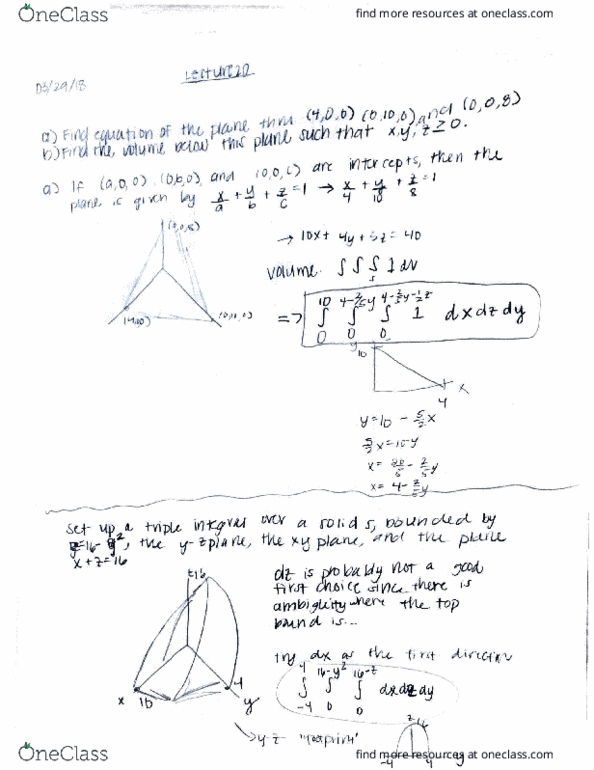 OneClass
find more resources at oneclass.com
Lecture 20
03/29/18
a) Find equation of the plane thru (4,0,0) (0,10,0), and (0,0,8)
b) Find the volume below this plane such that x,y,z ≥ 0.
a) If (a,0,0) (0,b,0) and (0,0,c) are intercepts, then the
plane is given by x/a + y/b + z/c = 1 → x/4 + y/10 + z/8 = 1
→ 10x + 4y + 5z = 40
volume ∫∫∫ 1 dV
S
=> ∫₀¹⁰ ∫₀ ∫₀ 1 dx dz dy
(0,0,8)
(4,0,0)
(0,10,0)
y
10
x
4
y = 10 - 5/2 x
5/2 x = 10 - y
x = 20/5 - 2/5 y
x = 4 - 2/5 y
Set up a triple integral over a solid S, bounded by
z=16-y², the y-z plane, the xy plane, and the plane
x+z=16
z 16
dz is probably not a good
first choice since there is
ambiguity where the top
bound is...
try dx as the first direction
∫₋₄⁴ ∫₀^(16-y²) ∫₀^(16-z) dx dz dy
x 16
4
y
→ yz "footprint"
z 16
-4
4
y
OneClass
find more resources at oneclass.com